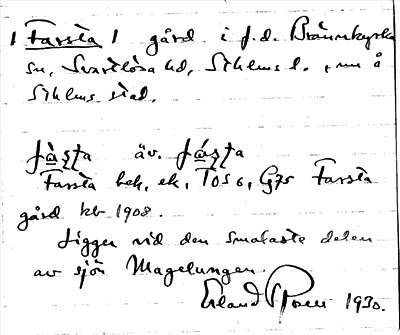 1 Farsta 1 gård i f.d. Brännkyrka
sn, Svartlösa hd, Sthlms l., nu å
Sthlms stad.
fàsta äv. fásta
Farsta bek, ek, TOS 6, G75 Farsta
gård kb 1908.
Ligger vid den smalaste delen
av sjön Magelungen.
Erland Rosell 1930.